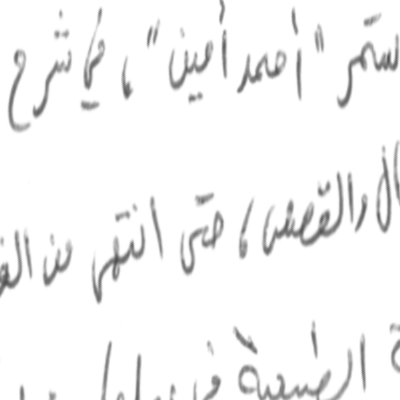 ستمر "أحمد أمين"، في شرح
ال والقصص، حتى انتهى من
الطبيعية في